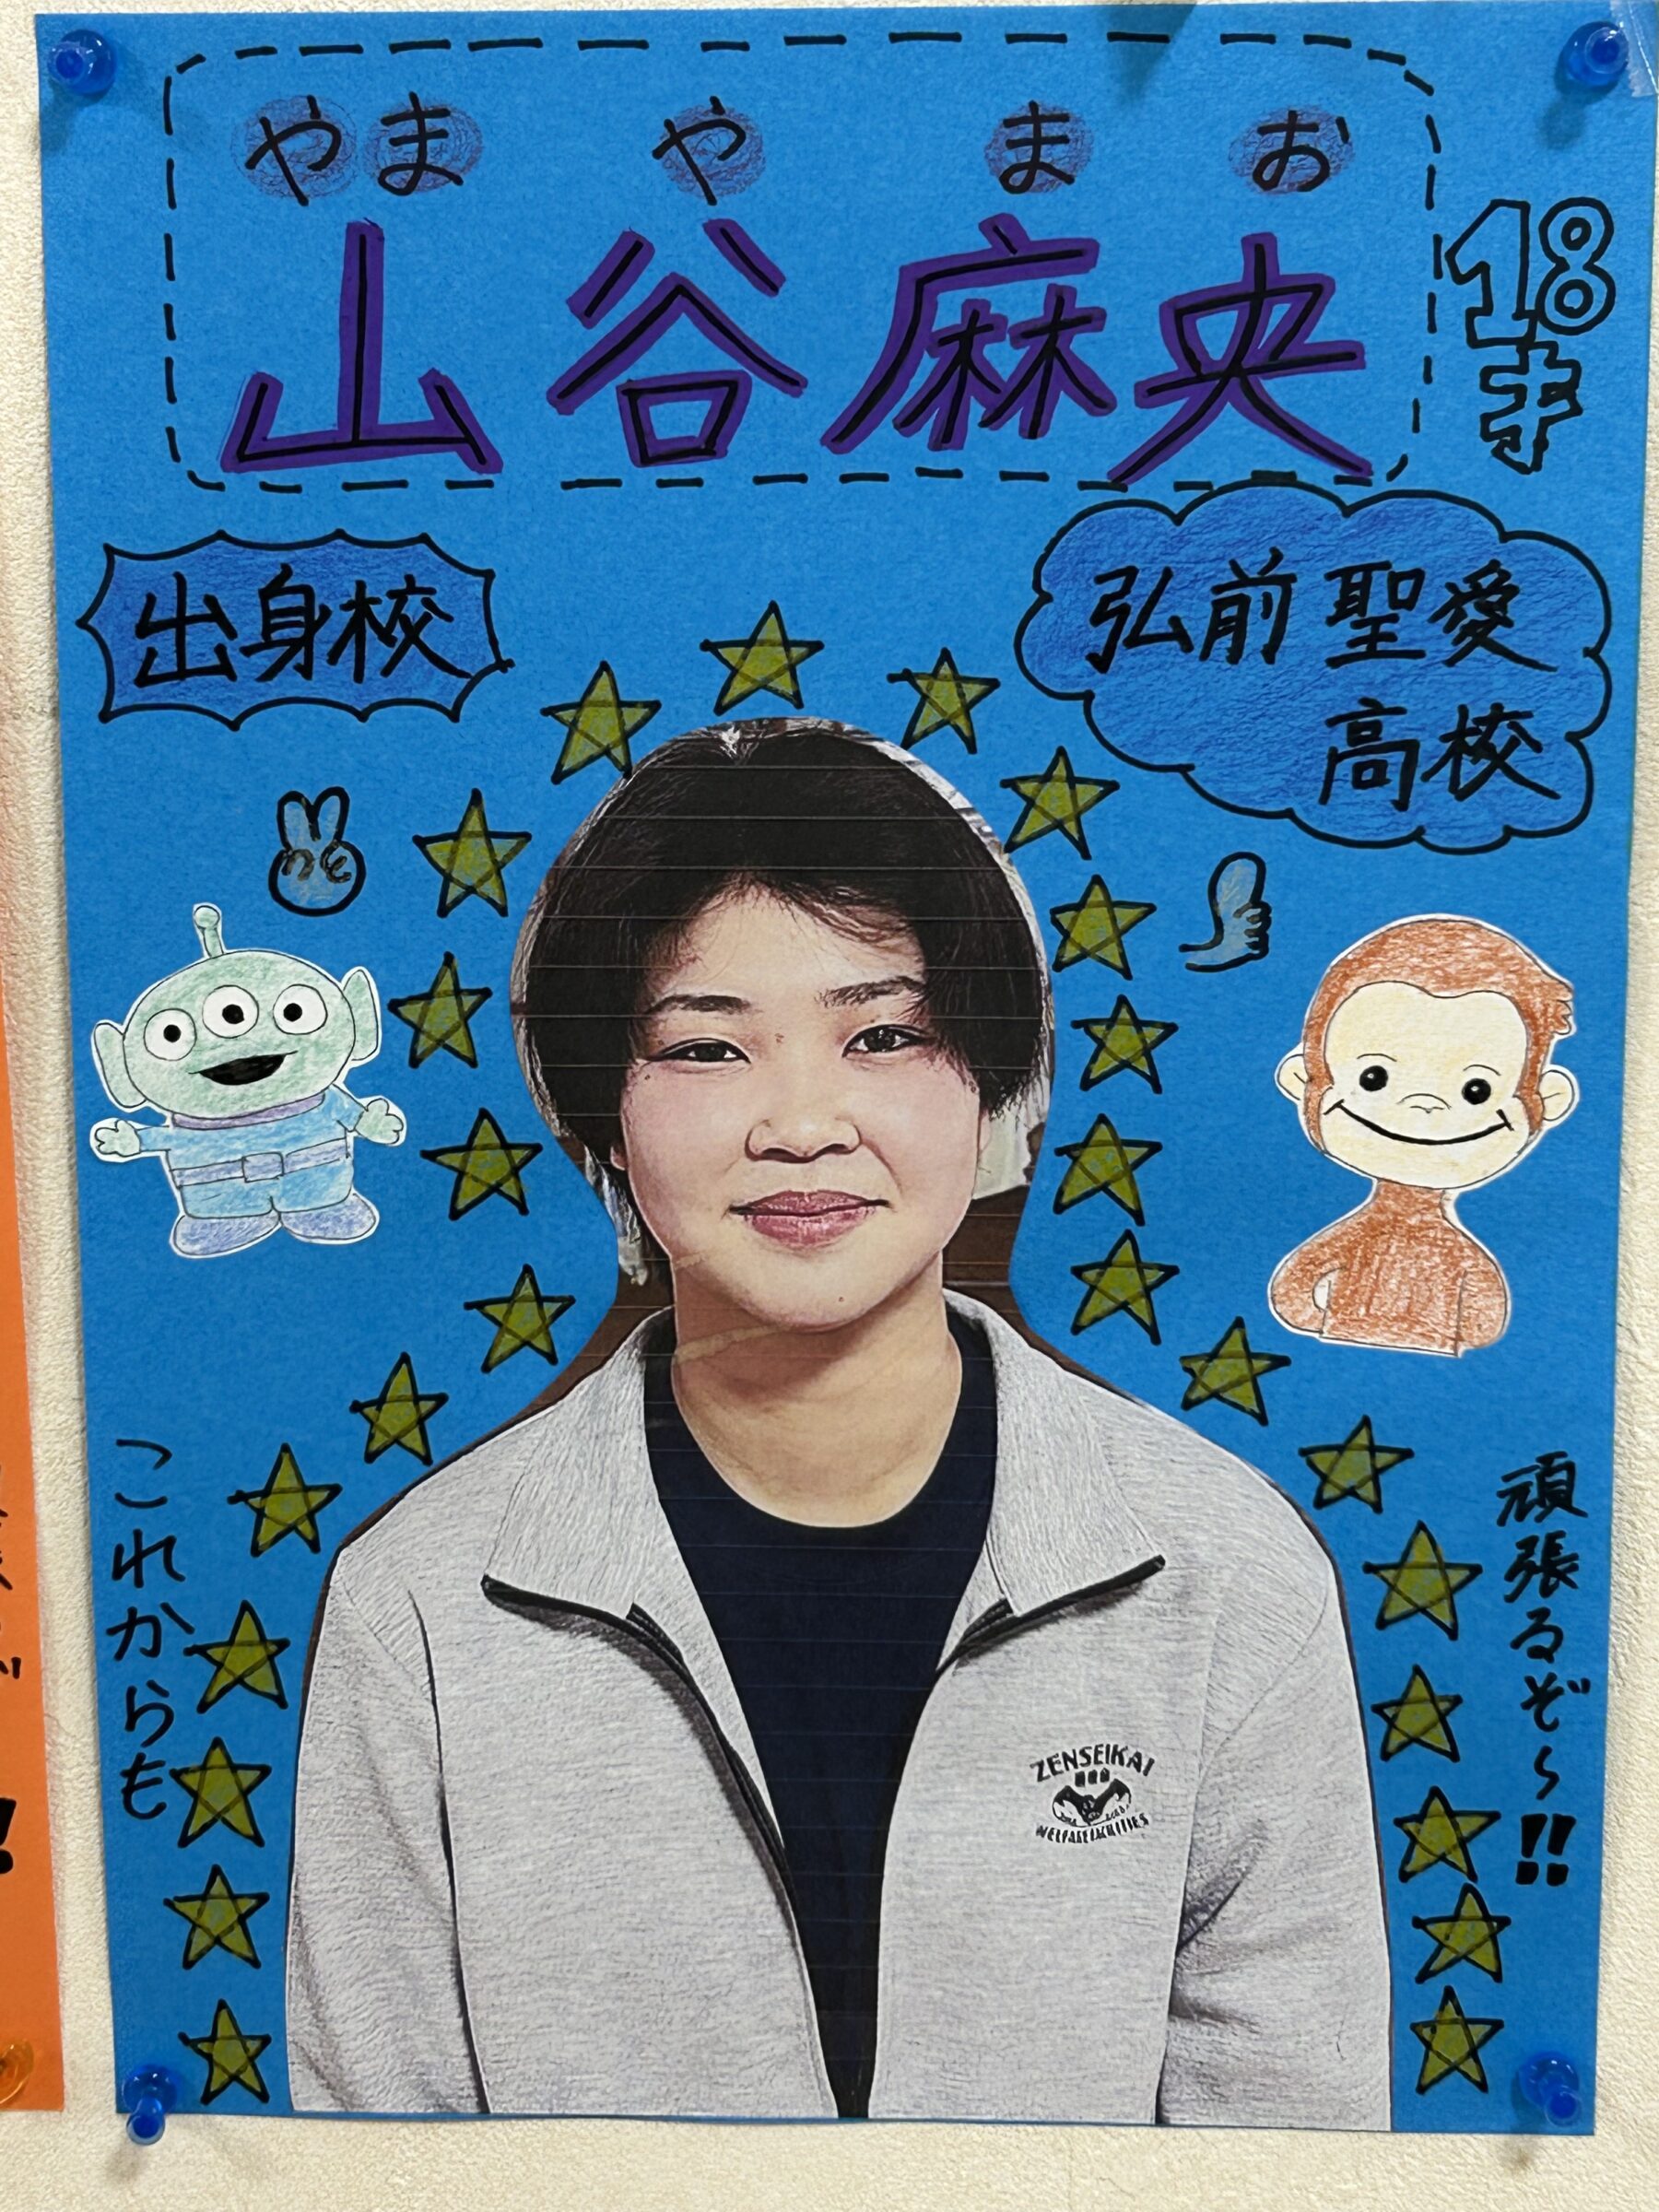 やま や ま お
山谷麻央
18才
出身校
弘前聖愛
高校
これからも
頑張るぞ〜!!
ZENSEIKAI
WELFARE FACILITIES